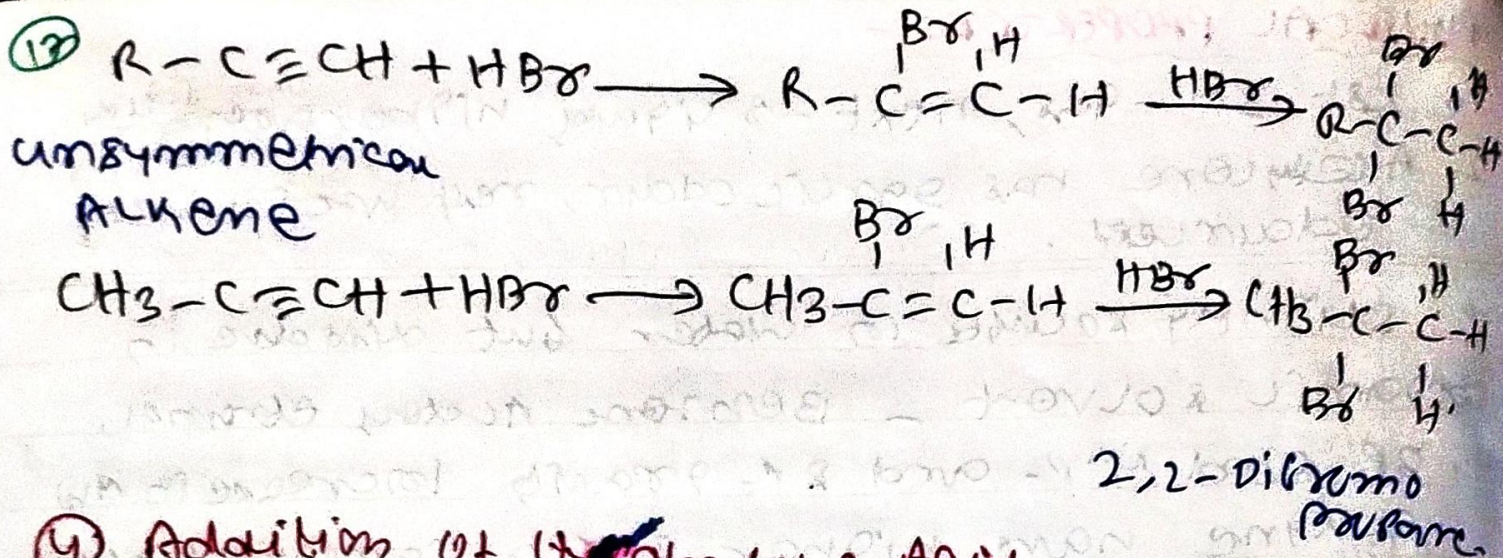 (13) R-C≡CH + HBr → R-C(Br)=C(H)-H —HBr→ R-C(Br)(Br)-C(H)(H)-H
unsymmetrical
ALKene
CH3-C≡CH + HBr → CH3-C(Br)=C(H)-H —HBr→ CH3-C(Br)(Br)-C(H)(H)-H
2,2-Dibromo
Propane.
4) Addition of